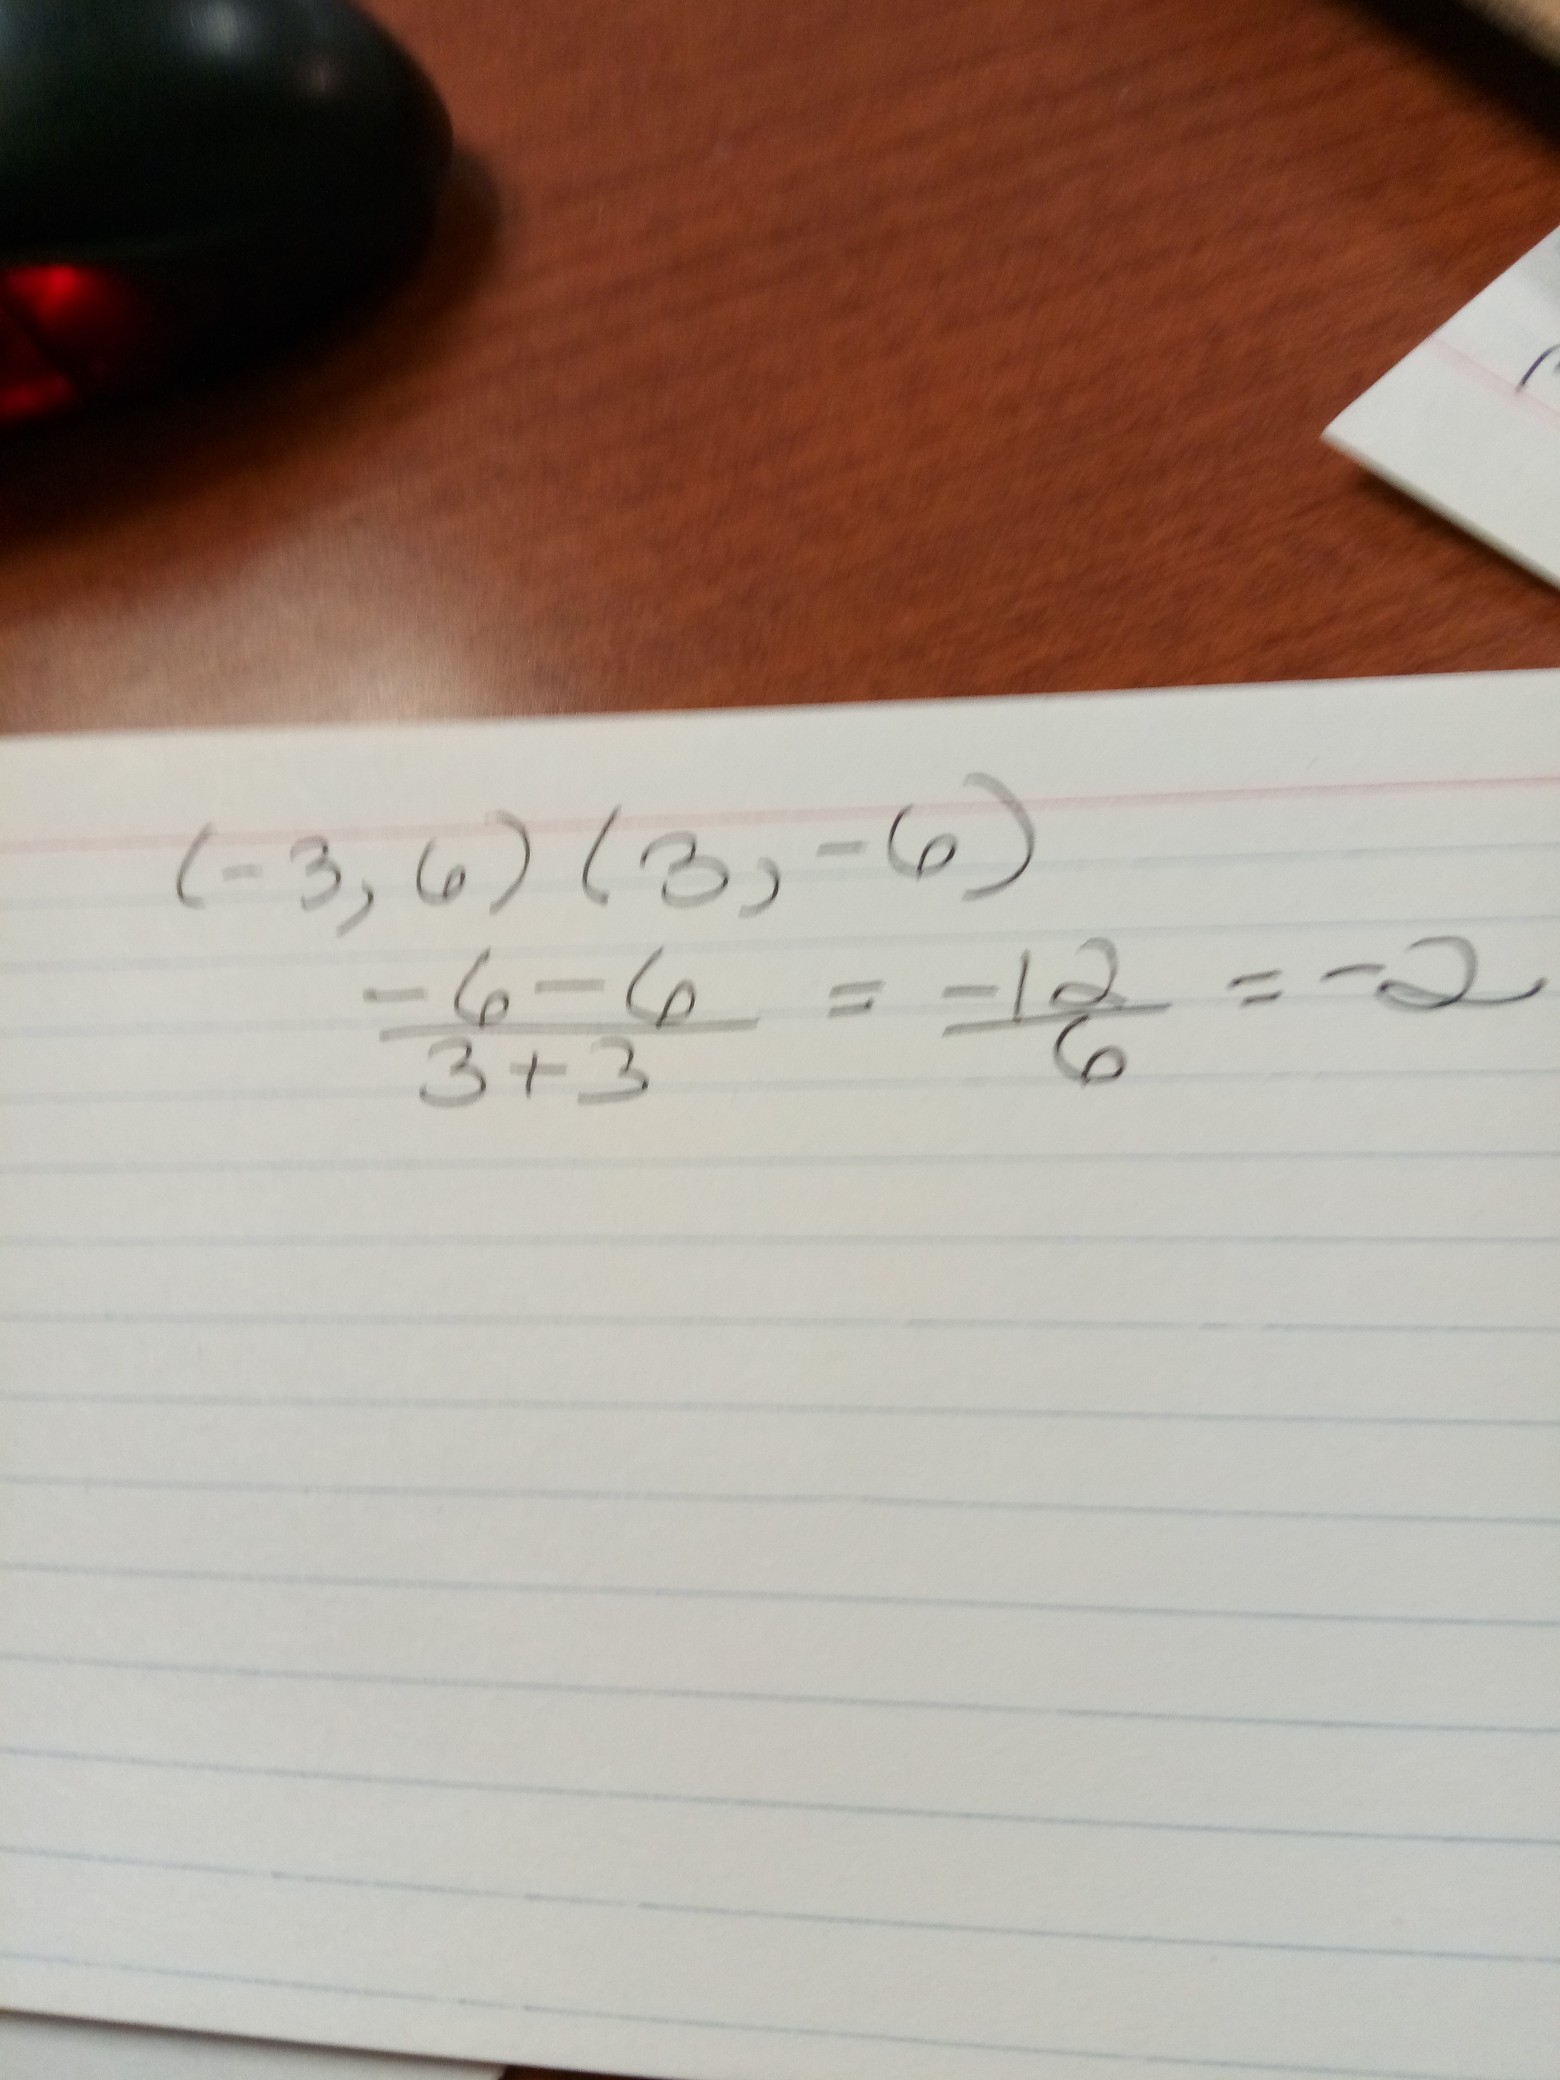 (-3, 6) (3, -6)
-6-6 = -12 = -2
3+3 6